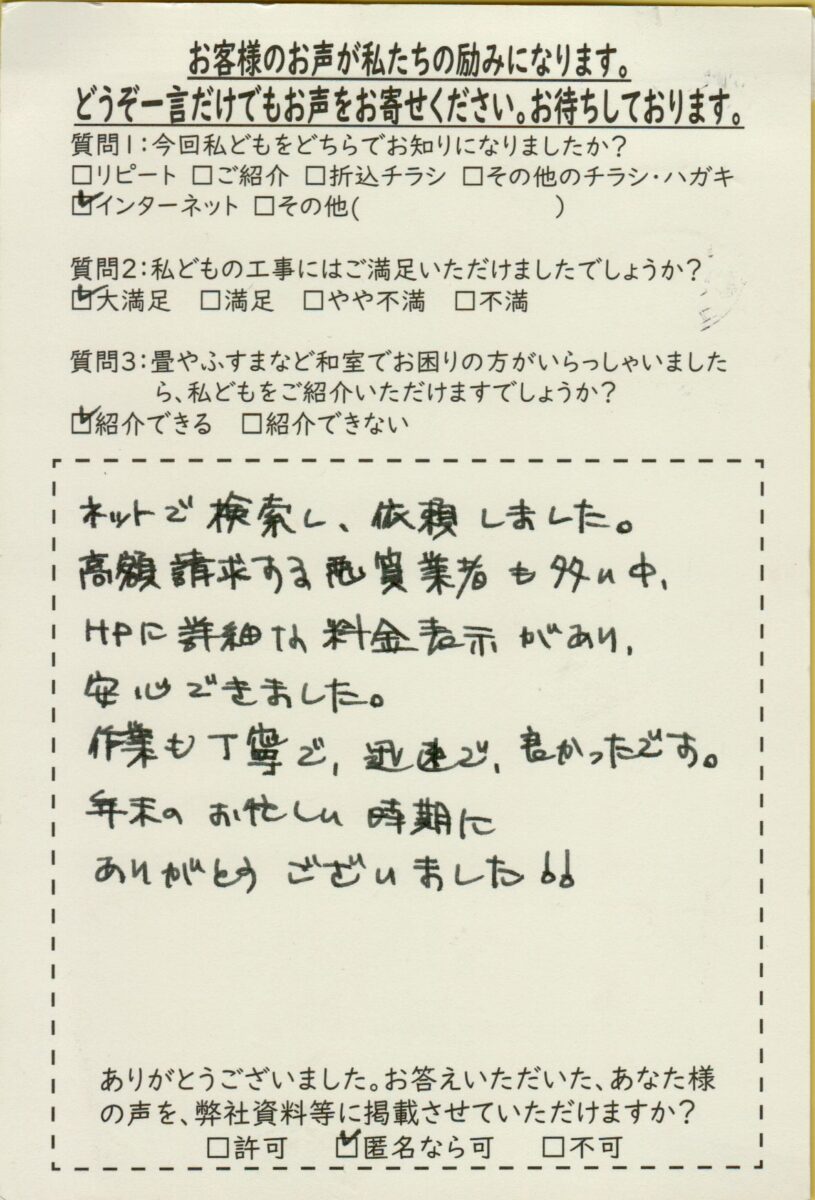 お客様のお声が私たちの励みになります。
どうぞ一言だけでもお声をお寄せください。お待ちしております。
質問1：今回私どもをどちらでお知りになりましたか？
□リピート □ご紹介 □折込チラシ □その他のチラシ・ハガキ
☑インターネット □その他(　　　　　　　)
質問2：私どもの工事にはご満足いただけましたでしょうか？
☑大満足 □満足 □やや不満 □不満
質問3：畳やふすまなど和室でお困りの方がいらっしゃいました
ら、私どもをご紹介いただけますでしょうか？
☑紹介できる □紹介できない
ネットで検索し、依頼しました。
高額請求する悪質業者も多い中、
HPに詳細な料金表示があり、
安心できました。
作業も丁寧で、迅速で、良かったです。
年末のお忙しい時期に
ありがとうございました!!
ありがとうございました。お答えいただいた、あなた様
の声を、弊社資料等に掲載させていただけますか？
□許可 ☑匿名なら可 □不可